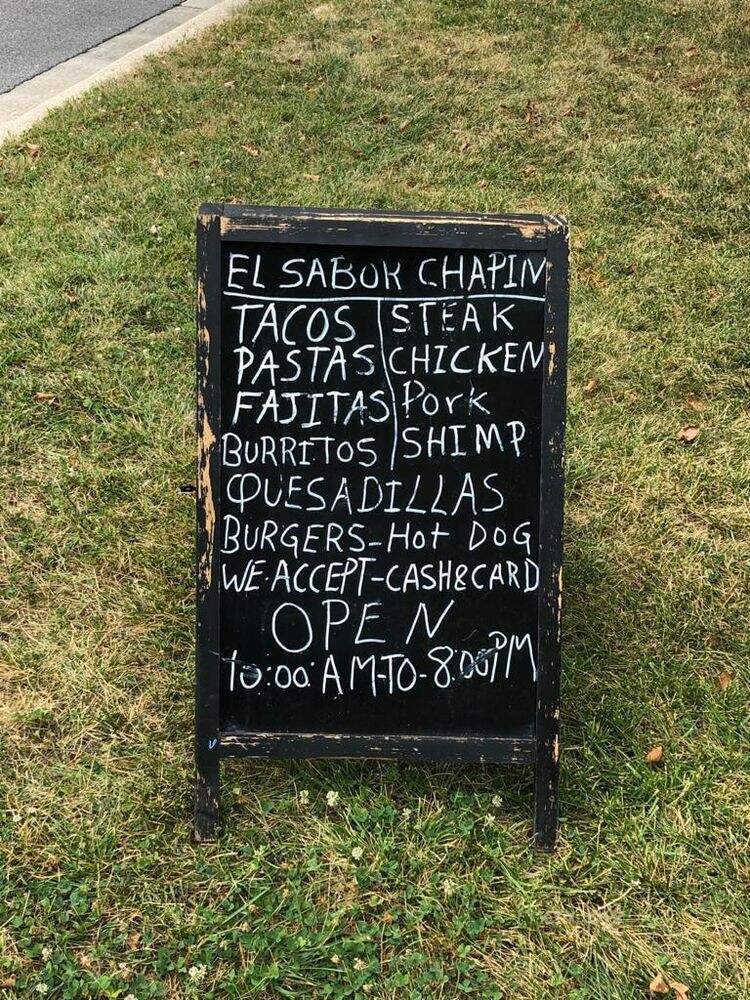 EL SABOR CHAPIN
TACOS STEAK
PASTAS CHICKEN
FAJITAS Pork
BURRITOS SHIMP
QUESADILLAS
BURGERS-Hot DOG
WE·ACCEPT-CASH&CARD
OPEN
10:00:AM-TO-8:00PM